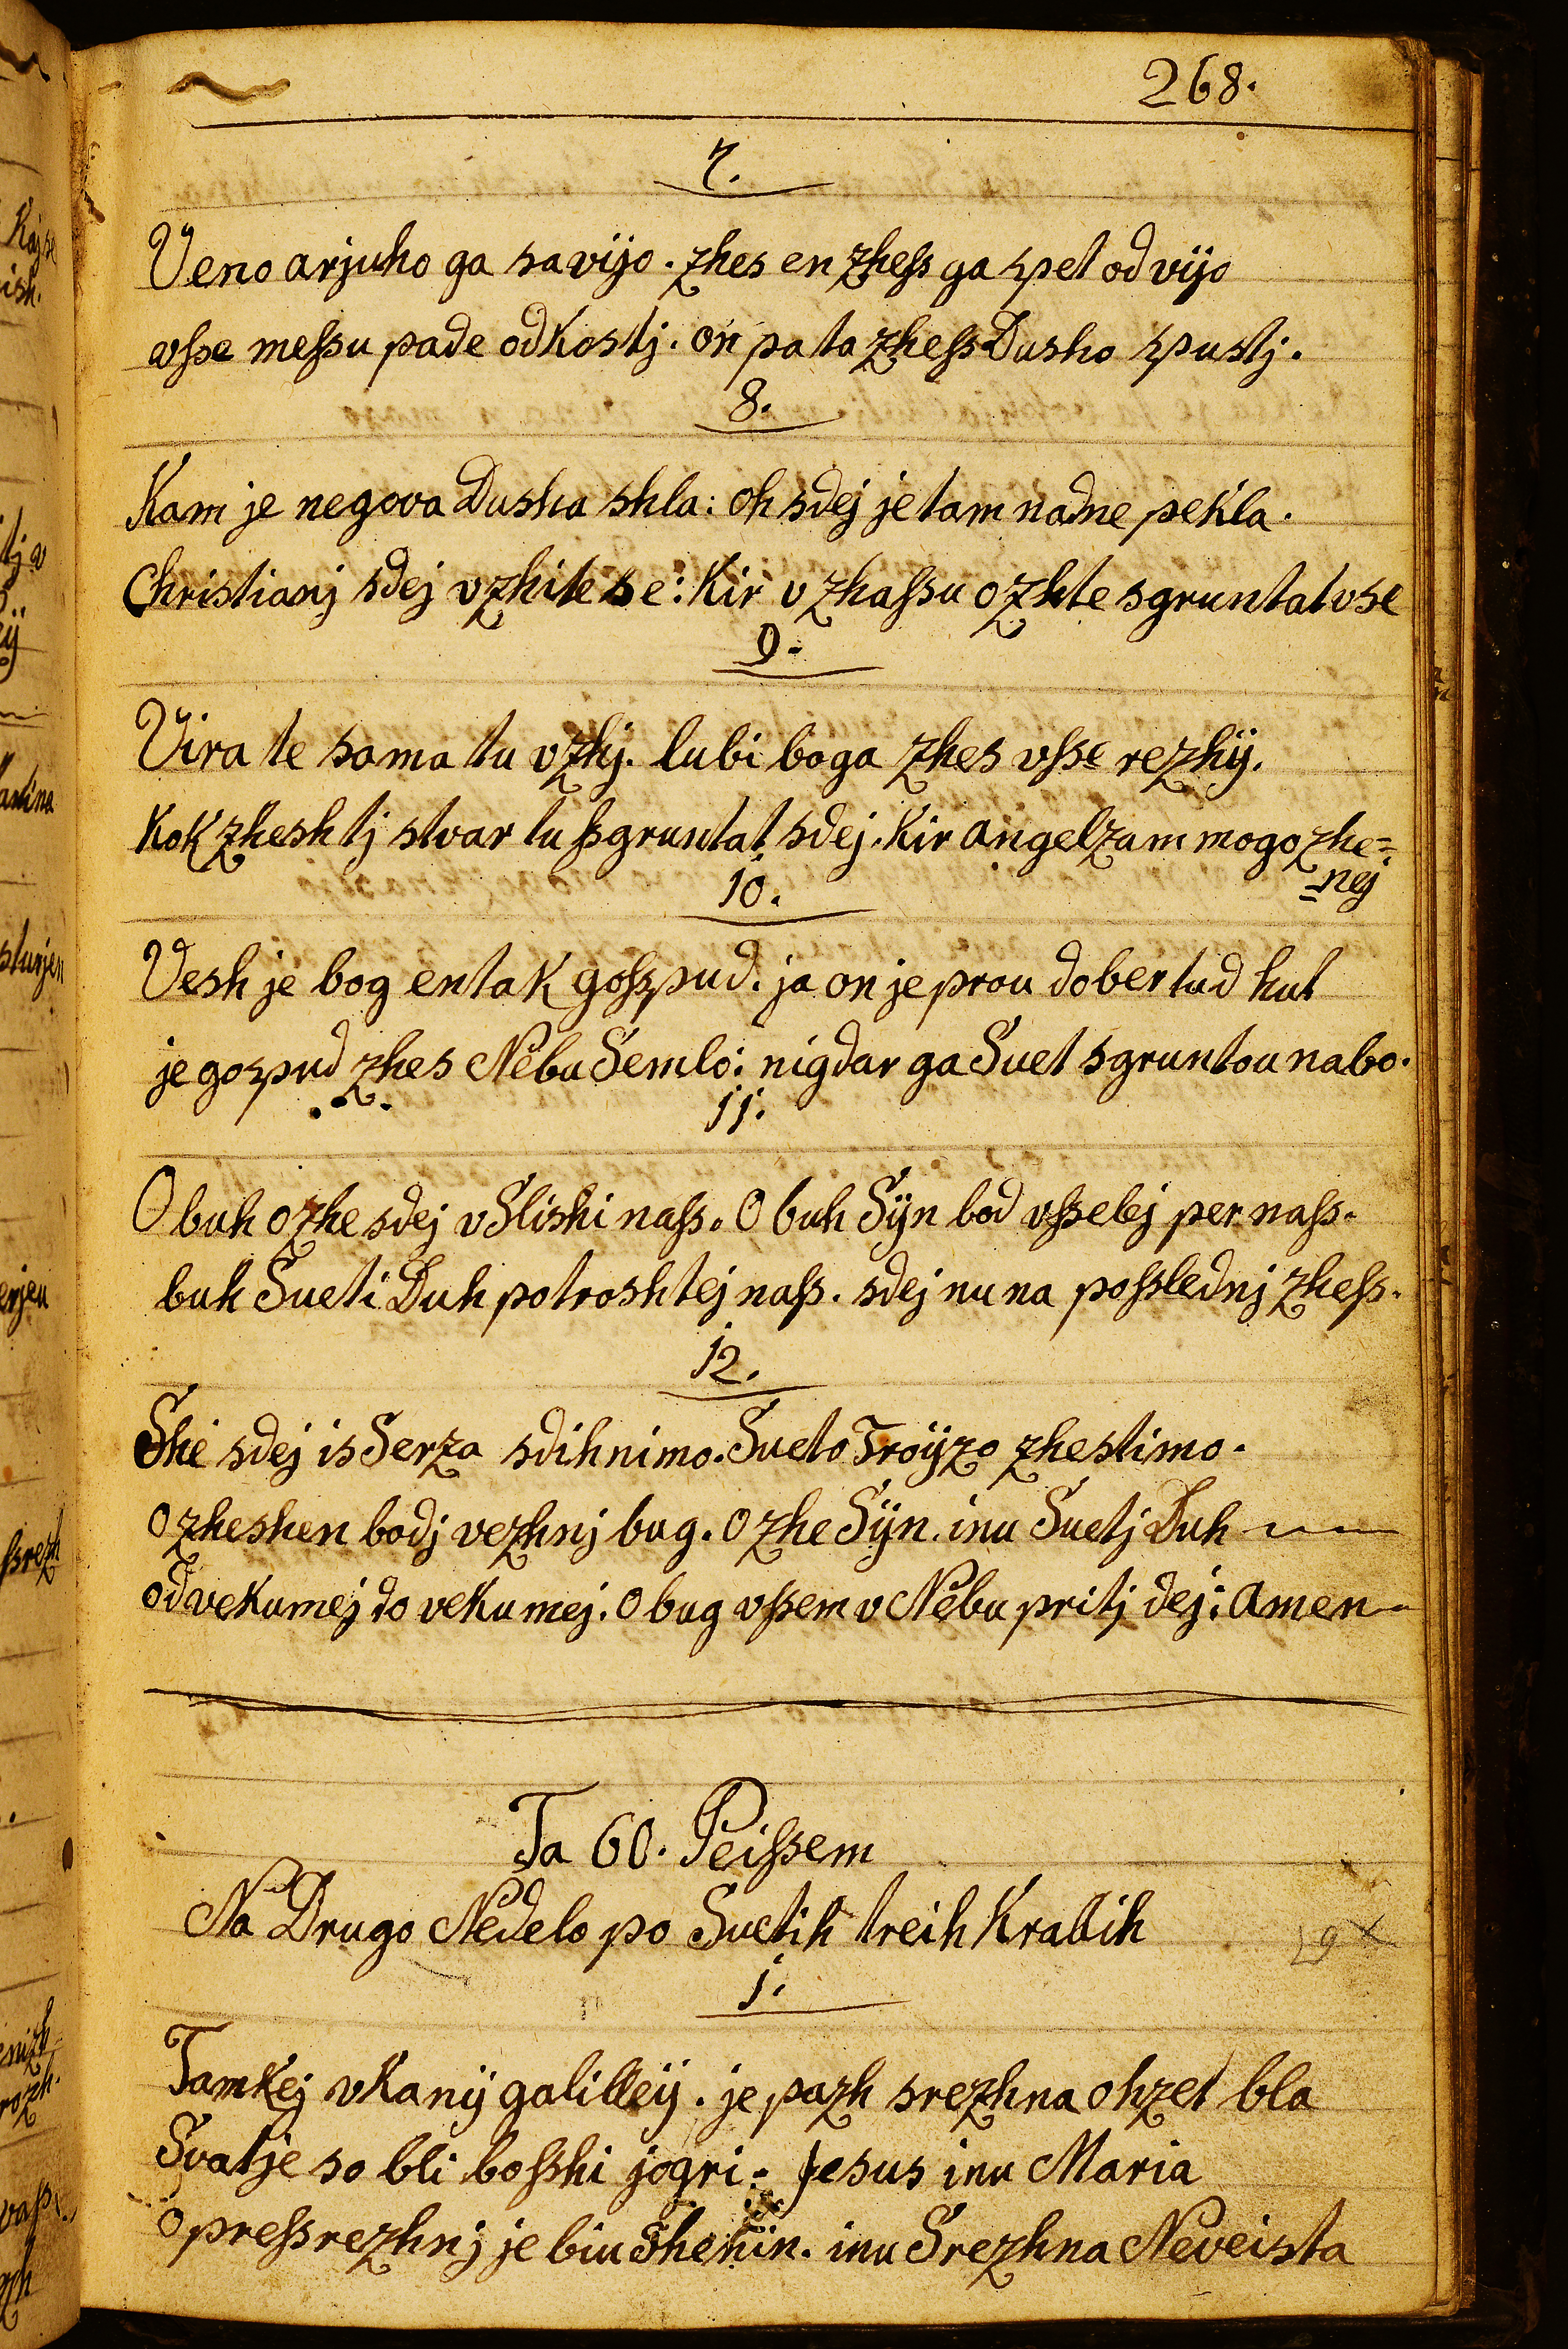 268.
7.
Veno arjuho ga savijo. zhes en zheſs ga spet od vijo
vſse meſsu pade od Kostj. on pa ta zheſs Dusho spustj.
8.
Kam je negova Dusha shla: oh sdej je tam nadne pekla.
Christianj sdej vzhite se: Kir v zhaſsu ozhte sgruntat vse
9.
Vira te sama tu vzhj. lubi boga zhes vſse rezhÿ.
Kok zhesh tj stvar tu ſsgruntat sdej. Kir angelzam mogozhe=
=nej
10.
Vesh je bog en tak goſspud. ja on je prou dober tud hut
je gospud zhes Nebu Semlo: nigdar ga Suet sgruntou nabo.
11.
O buh ozhe sdej v Slishi naſs. O buh Sÿn bod vſselej per naſs.
buh Sueti Duh potroshtej naſs. sdej nu na poſslednj zheſs.
12.
She sdej is Serza sdihnimo. Sueto Troÿzo zhestimo.
ozheshen bodj vezhnj bug. Ozhe Sÿn. inu Suetj Duh
od vekumej do vekumej. O bug vſsem v Nebu pritj dej: Amen
Ta 60. Peiſsem
Na Drugo Nedelo po Suetih treih Kralih
1.
Tamkej vKanÿ galilleÿ. je pazh srezhna ohzet bla
Svatje so bli boſshi jogri. Jesus inu Maria
O preſsrezhnj je biu Shenin. inu Srezhna Neveista